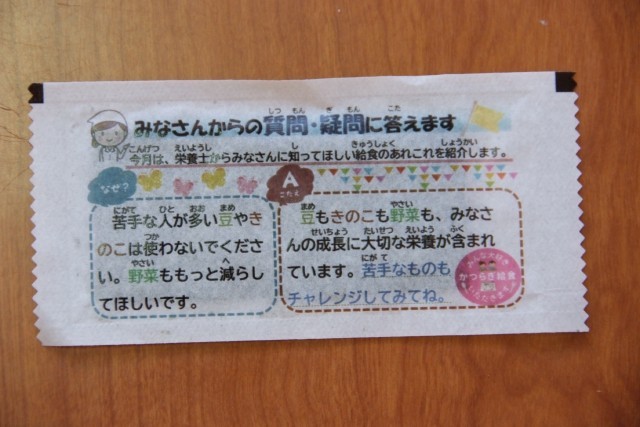 みなさんからの質問・疑問に答えます
今月は、栄養士からみなさんに知ってほしい給食のあれこれを紹介します。
なぜ?
苦手な人が多い豆やき
のこは使わないでくださ
い。野菜ももっと減らし
てほしいです。
A
こたえ
豆もきのこも野菜も、みなさ
んの成長に大切な栄養が含まれ
ています。苦手なものも
チャレンジしてみてね。
かつらぎ給食